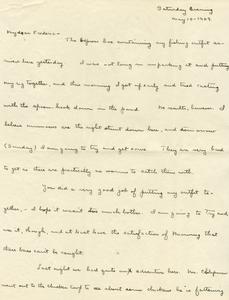 Saturday Evening
May 15-1909
My dear Finders:-
The Express box containing my fishing outfit ar-
rived here yesterday. I was not long in unpacking it and putting
my rig together, and this morning I got up early and tried casting
with the spoon hook down in the pond. No results, however. I
believe minnows are the right stunt down here, and tomorrow
(Sunday) I am going to try and get some. They are very hard
to get as there are practically no worms to catch them with.
You did a very good job of putting my outfit to-
gether, - I hope it wasn't too much bother. I am going to try and
use it, though, and at least have the satisfaction of knowing that
these bass can't be caught.
Last night we had quite an adventure here. Mr.
went out to the chicken coop to see about some chickens he is fattening